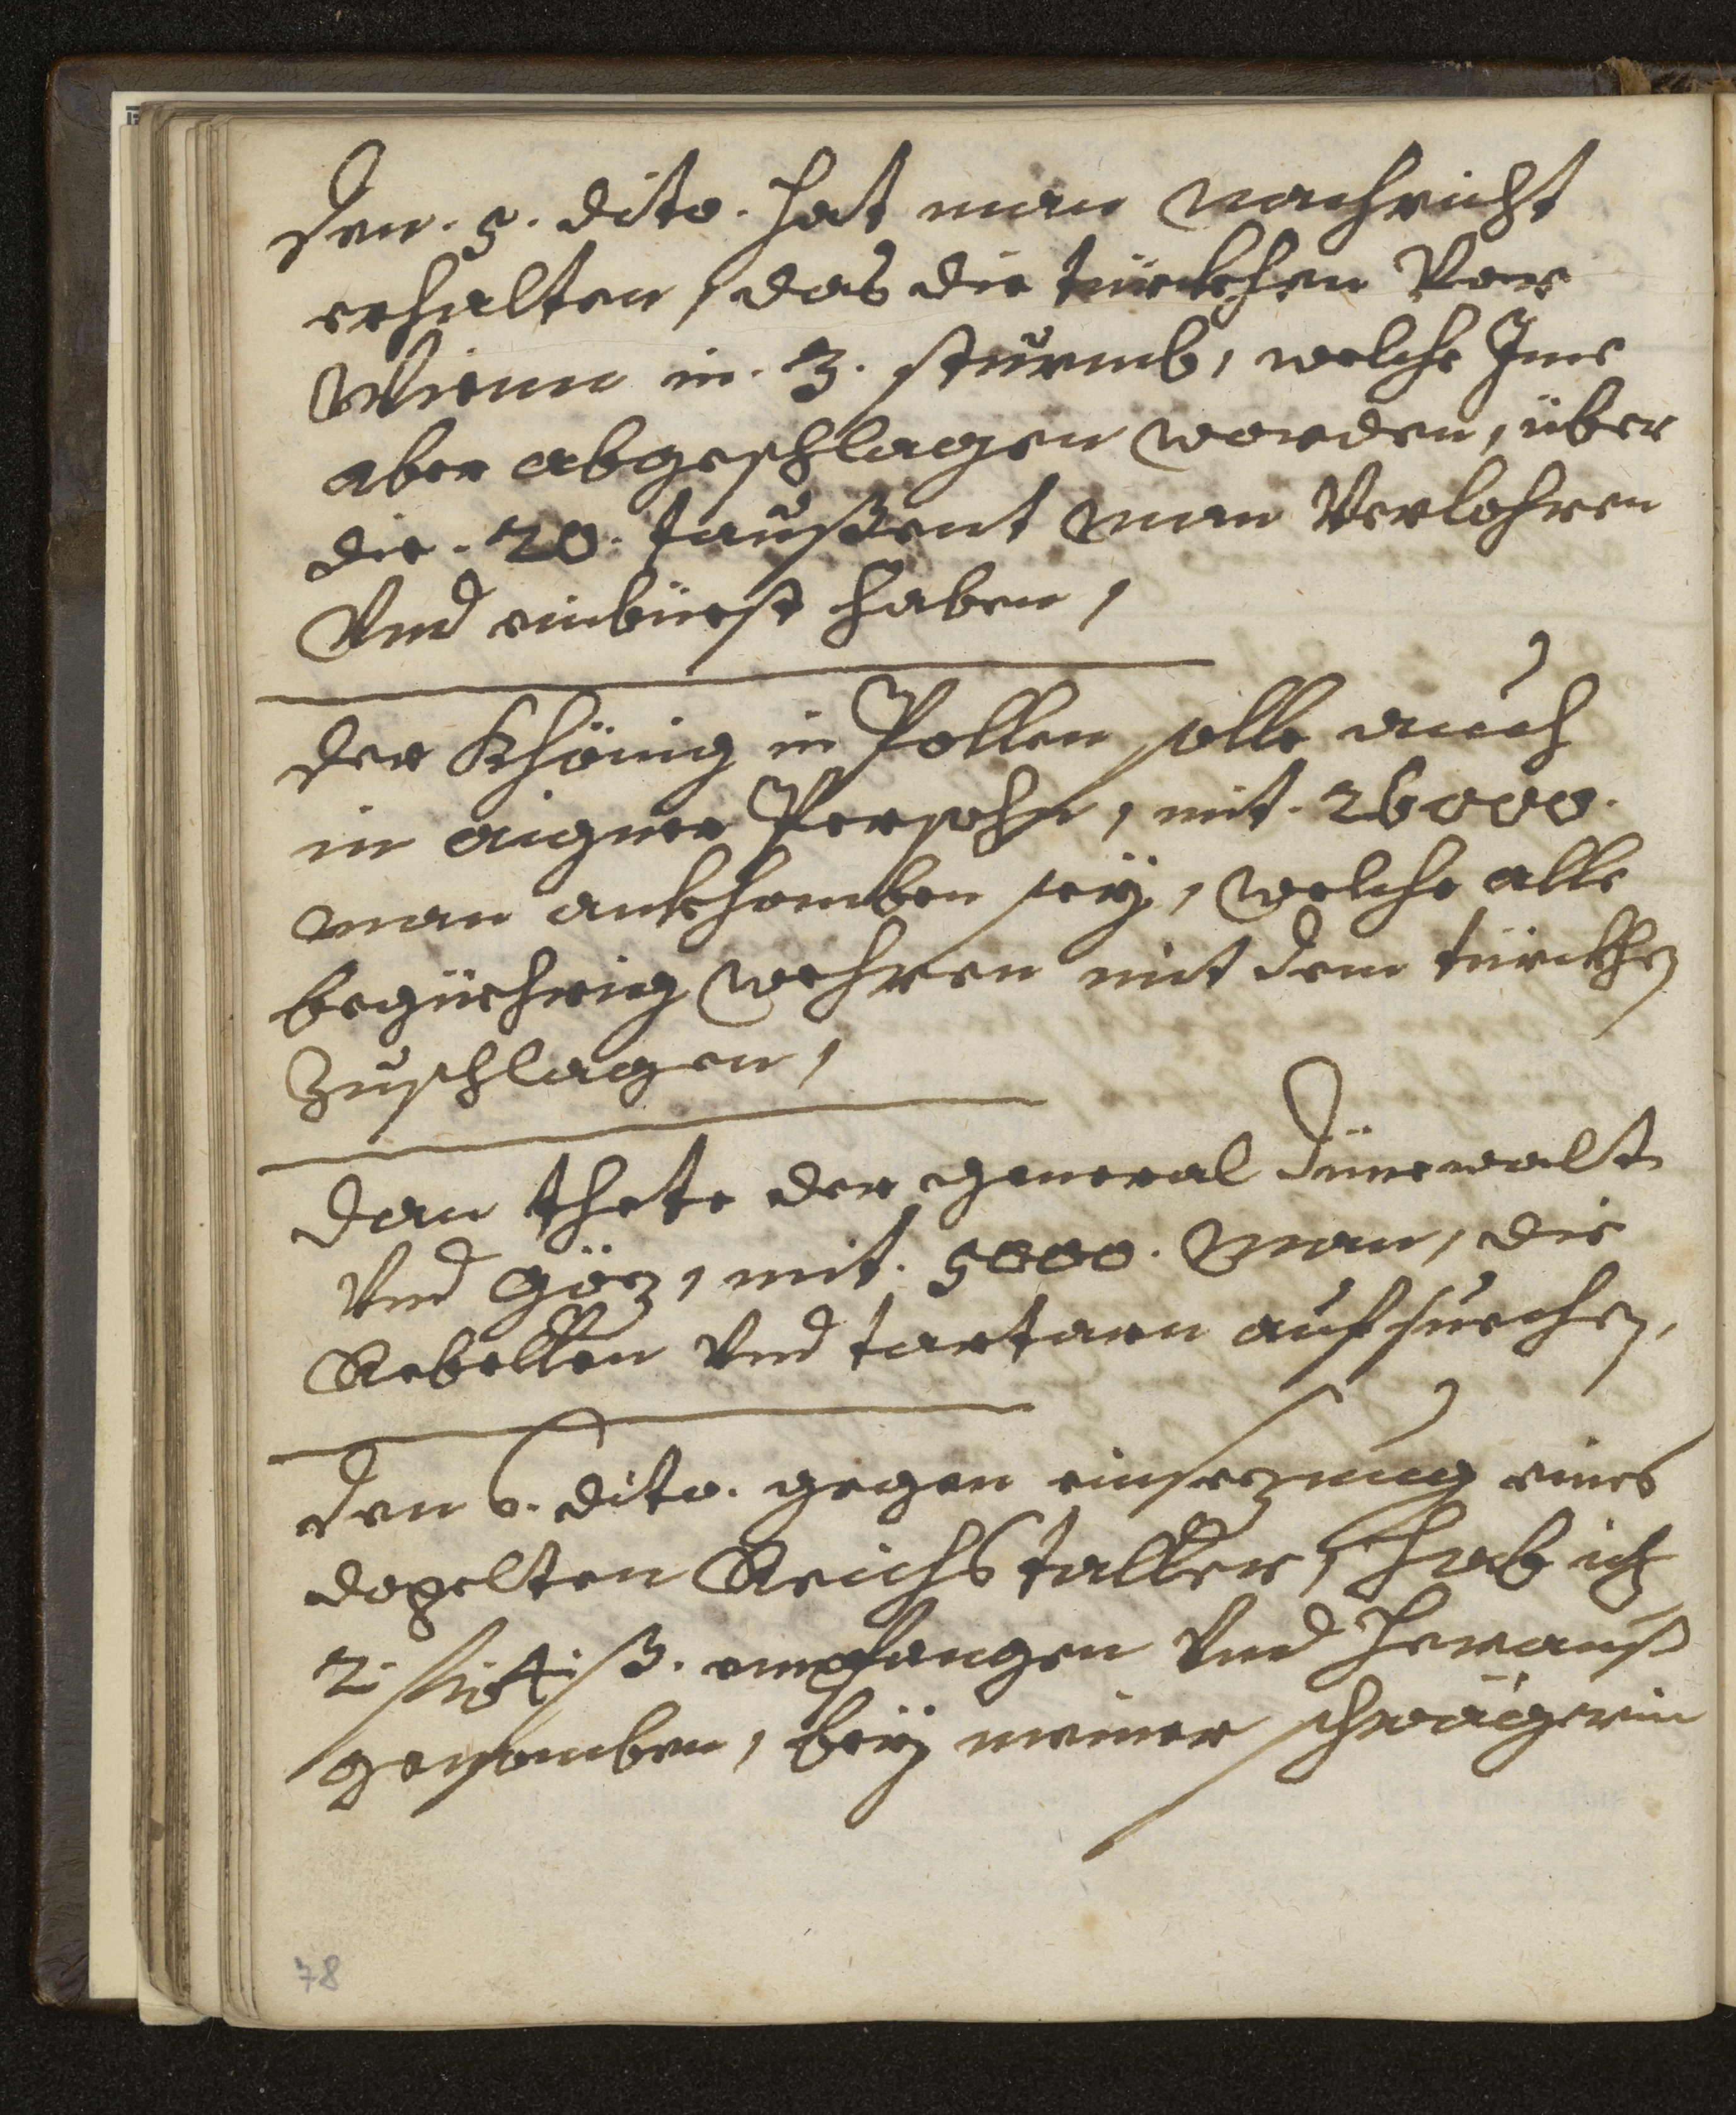 Den. 5. dito. hat man nachricht
erhalten, das die türckhen Vor
Wienn in. 3. stürmb, welche Ime
aber abgeschlagen worden, über
die. 20. taußent man Verlohren
Vnd einbüest haben,
der Khönig in Pollen solle auch
in aigner Persohn, mit. 26000.
man ankhomben seÿ, welche alle
begürhrig wehren mit dem türckhen
zuschlagen,
Dan thete der general Dünewalt
Vnd Göz, mit. 5000. Man, die
Rebellen Vnd tartarn aufsuechen,
Den 6. dito. gegen einsezung eines
dopelten Reichstaller, hab ich
2. 4. ß. empfangen Vnd heraus
genomben, beÿ meiner schwägerin
78